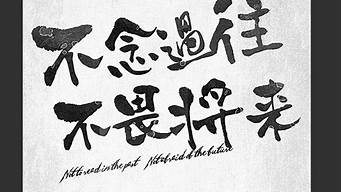 不念過往
不畏將来
Not to read in the past Not afraid of the future